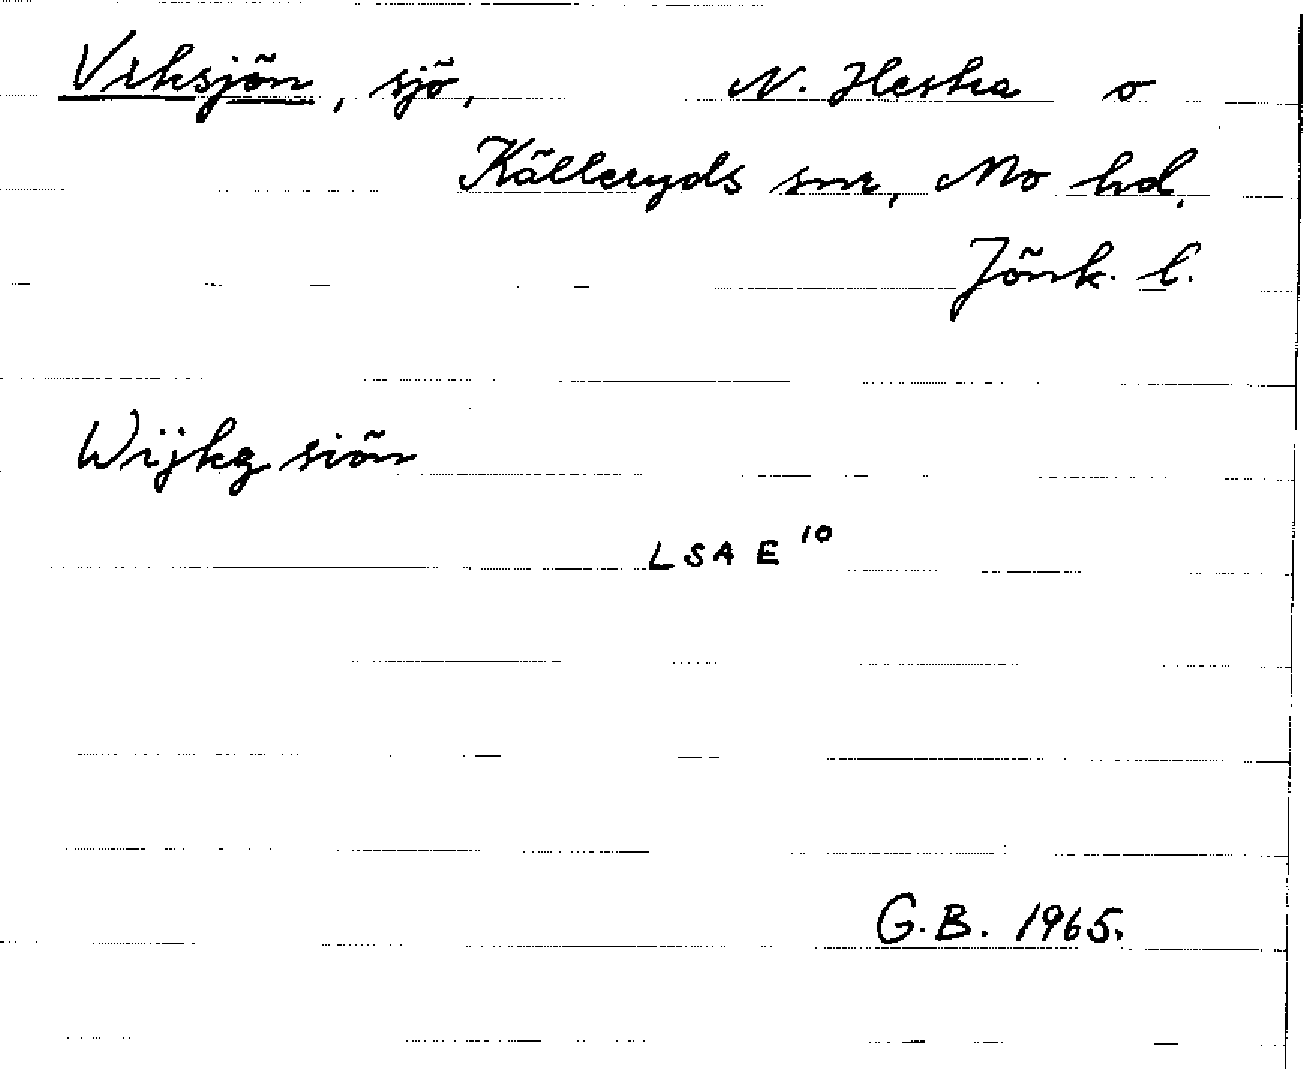 Viksjön, sjö, N. Hestra o
Källeryds snr, Mo hd,
Jönk. l.
Wijkz siön
LSA E 10
G.B. 1965.